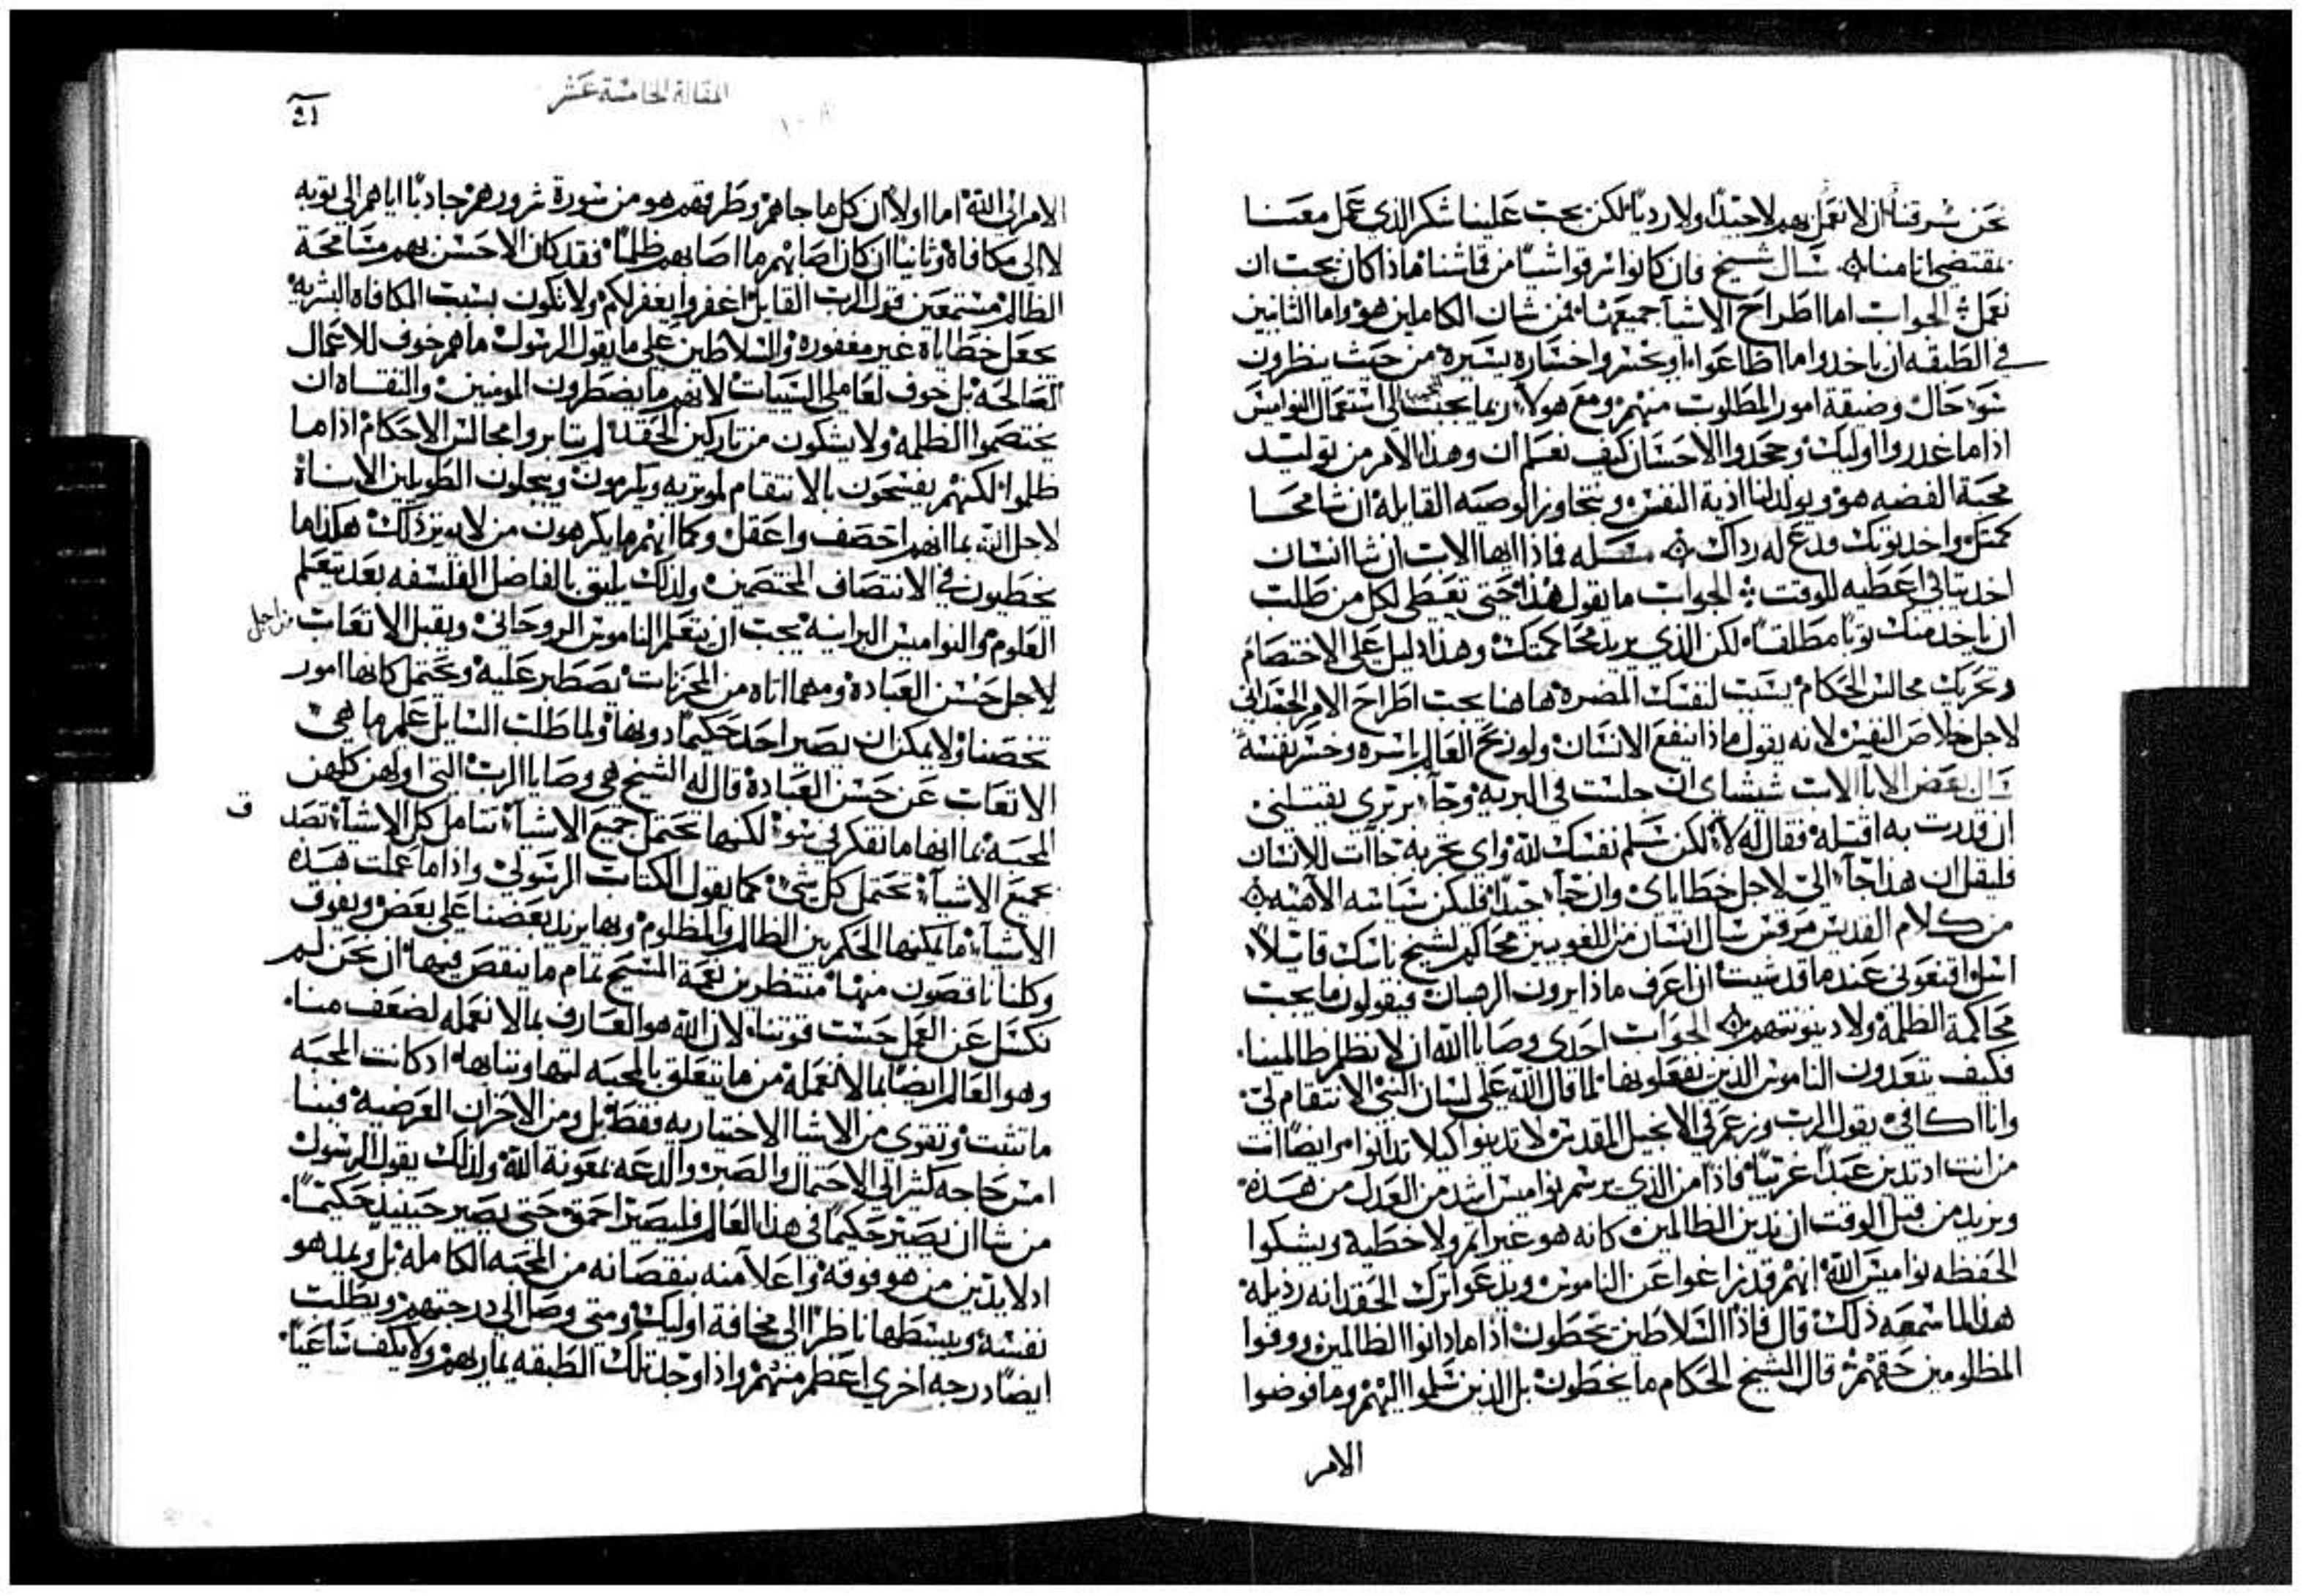 نحن سرقنا ان لا نعمل بهم لا جيدًا ولا رديًا لكن يجب علينا شكر الذي عمل معنا
بمقتضي اثامنا سال شيخ فان كانوا سرقوا شيًا من قاشنا ماذا كان يجب ان
نعمل الجواب اما اطراح الاشيا جميعها فمن شان الكاملين هو واما الثانيين
في الطبقه ان ياخدوا ما اطاعوا او يخسروا خساره يسيرة من حيث ينظرون
سو حال وضيقة امور المطلوب منهم ومع هولا ربما يجب الي استعمال النواميس
اذا ما غدروا اوليك وجحدوا الاحسان كيف نعلم ان وهذا الامر من توليد
محبة الفضه هو ويولد لنا اذية النفس ونتجاوز الوصيه القايله ان شا محا
كمتك واخد توبك فدع له رداك مسله فاذا ايها الاب ان شا انسان
اخد تيابي اعطيه للوقت الجواب ما يقول هذا حتي تعطي لكل من طلب
ان ياخد منك توبًا مطلقًا لكن الذي يريد محاكمتك وهذا دليل علي الاختصام
وتحريك مجالس الحكام بسبب لنفسك المضرة هاهنا يجب اطراح الامر الجسداني
لاجل خلاص النفس لانه يقول ماذا ينفع الانسان ولو ربح العالم باسره وخسر نفسه
سال بعض الابا الاب شيشاي ان جلست في البريه وجا بربري يقتلني
ان قدرت به اقتله فقال له لا لكن سلم نفسك لله واي تجربه جاات للانسان
فليقل ان هذا جا الي لاجل خطاياي وان جا جيدًا فلكن سياسه الاهيه
من كلام القديس مرقس سال انسان من اللغويين محاكم لشيخ ناسك قايلاً
اسل اقنعوني عند ما قد شيت ان اعرف ماذا يرون الرهبان فيقولون ما يجب
محاكمة الظلمة ولا دينونتهم الجواب احدي وصايا الله ان لا نظلم ظالمينا
فكيف تتعدون الناموس الذين تفعلونها لما قال الله علي لسان النبي الانتقام لي
وانا اكافي يقول الرب وزعم في الانجيل المقدس لا تدينوا كيلا تدانوا وايضًا انت
من انت اد تدين عبدًا غريبًا فاذا من الذي يرسم نواميس اشد من العدل من هذه
ويريد من قبل الوقت ان يدين الظالمين كانه هو غير اثم ولا خطية ويشكوا
الحفظه نواميس الله انهم قد زاغوا عن الناموس ويدعوا ترك الحقد انه رذيلة
هذا لما سمعه ذلك قال فاذا السلاطين يخطون اذا ما دانوا الظالمين ووفوا
المظلومين حقهم قال الشيخ الحكام ما يخطون بل الذين سلموا اليهم وما فوضوا
الامر
المقالة الخامسة عشر
الامر الي الله اما اولاً ان كل ما جاهم وطرقهم هو من سورة شرورهم جادبًا اياهم الي توبه
لا الي مكافاة وثانيًا ان كان اصابهم ما اصابهم ظلمًا فقد كان الاحسن بهم مسامحة
الظالم مستمعين قول الرب القايل اغفروا يغفر لكم ولا تكون بسبب المكافاه البشريه
نجعل خطايانا غير مغفورة والسلاطين علي ما يقول الرسول ما هم خوف للاعمال
الصالحه بل خوف لعاملي السيات لانهم ما يضطرون المومنين والتقاه ان
يختصموا الظلمه ولا يشكون من تاركين الحقد لم يتابروا مجالس الاحكام اذا ما
ظلموا لكنهم يفسحون بالانتقام لموتريه ويكرمون ويبجلون الطويلين الاناة
لاجل الله بما انهم احصف واعقل وكما انهم ما يكرهون من لا يوتر ذلك هكذا ما
يخطيون في الانتصاف المختصمين ولذلك يليق بالفاضل الفلسفه بعد تعلم
العلوم والنواميس البرانيه يجب ان يتعلم الناموس الروحاني ويقبل الاتعاب من اجل
لاجل حسن العبادة ومهما اتاه من المحزنات يصطبر عليه ويحتمل كانها امور
تخصنا ولا يمكن ان يصير احد حكيمًا دونها ولما طلب السايل علم ما هي
الاتعاب عن حسن العبادة قال له الشيخ هي وصايا الرب التي اولهن كلهن
المحبه بما انها ما تفكر في سو لكنها تحتمل جميع الاشيا تتامل كل الاشيا تصد ق
بجميع الاشيا تحتمل كل شي كما يقول الكتاب الرسولي واذا ما عملت هذه
الاشيا ما يمكنها الحكم بين الظالم والمظلوم وبها يزيد بعضنا علي بعض ويفوق
وكلنا ناقصون منها منتظرين نعمة المسيح تمام ما ينقص فيها ان نحن لم
نكسل عن العمل حسب قوتنا لان الله هو العارف بما لا نعمله لضعف منا
وهو العالم ايضًا بما لا نعمله من ما يتعلق بالمحبه لتهاوننا بها اد كانت المحبه
ما تثبت وتقوي من الاشيا الاختياريه فقط بل ومن الاحزان العرضية فبنا
امس حاجه كثيرا الي الاحتمال والصبر والدعه بمعونة الله ولذلك يقول الرسول
من شا ان يصير حكيمًا في هذا العالم فليصير احمق حتي يصير حينيد حكيمًا
اد لا يدين من هو فوقه واعلا منه بنقصانه من المحبه الكامله بل ويمد هو
نفسه ويبسطها ناظرًا الي مخافة اوليك ومتي وصل الي درجتهم ويطلب
ايضًا درجه اخري اعظم منهم واذا وجد تلك الطبقه يماريهم ولا يكف ساعيًا